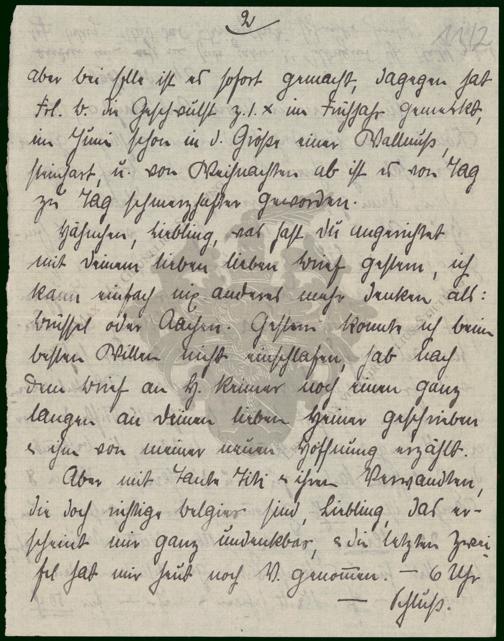 2
1112
aber bei Elle ist es sofort gemacht, dagegen hat
Frl. B. die Geschwulst z. 1. x im Frühjahr gemerkt,
im Juni schon in d. Größe einer Wallnuß,
steinhart, u. von Weihnachten ab ist es von Tag
zu Tag schmerzhafter geworden.
Hähnchen, Liebling, was hast du angerichtet
mit deinem lieben lieben Brief gestern, ich
kann einfach nix anderes mehr denken als:
Brüssel oder Aachen. Gestern konnte ich beim
besten Willen nicht einschlafen, hab nach
dem Brief an H. Reimer noch einen ganz
langen an deinen lieben Heiner geschrieben
& ihm von meiner neuen Hoffnung erzählt.
Aber mit Tante Titi & ihren Verwandten,
die doch richtige Belgier sind, Liebling, das er-
scheint mir ganz undenkbar, & die letzten Zwei-
fel hat mir heut noch V. genommen. — 6 Uhr
— Schluß.